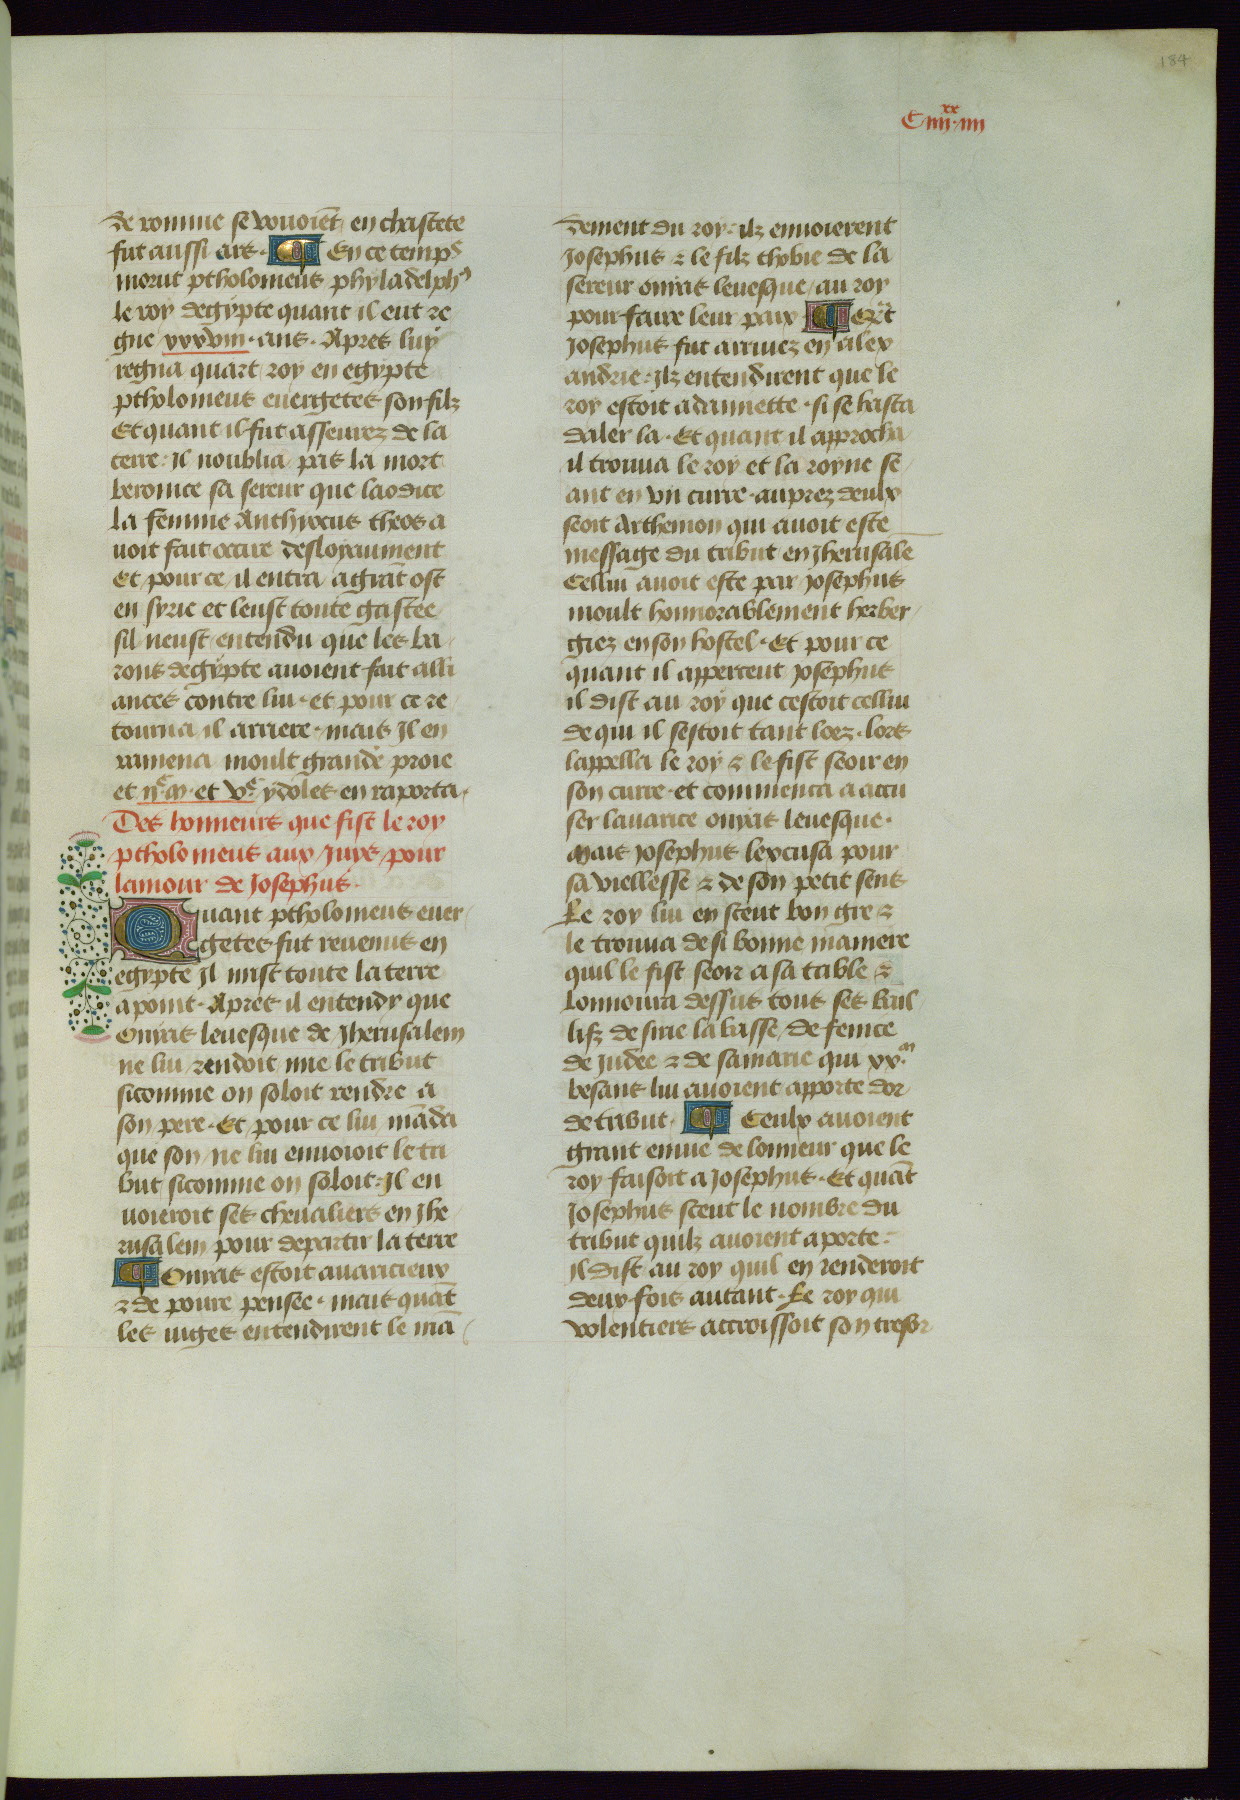 184
C iiii xx iiii
de romme se vouoiēt en chastete
fut aussi ars · ¶ En ce temps
morut ptholomeus phyladelphꝰ
le roy degypte quant il eut re
gne xxxviii · ans · Apres luy
regna quart roy en egypte
ptholomeus euergetes son filz
Et quant il fut asseurez de la
terre : Il noublia pas la mort
beronice sa sereur que laodice
la femme Anthiocus theos a
uoit fait occire desloyaument
Et pour ce il entra a grāt ost
en syrie et leust toute gastee
sil neust entendu que les ba
rons degypte auoient fait alli
ances contre lui · et pour ce re
tourna il arriere · mais Il en
ramena moult grande proie
et ii.c m · et v.c ydoles en raporta ·
Des honneurs que fist le roy
ptholomeus aux Iuys pour
lamour de Josephus ·
Quant ptholomeus euer
getes fut reuenus en
egypte Il mist toute la terre
a point · Apres il entendy que
Onyas leuesque de Jherusalem
ne lui rendoit mie le tribut
sicomme on soloit rendre a
son pere · Et pour ce lui māda
que son ne lui enuoioit le tri
but sicomme on soloit : Il en
uoieroit ses cheualiers en Jhe
rusalem pour departir la terre
¶ Onyas estoit auaricieux
⁊ de poure pensee · mais quāt
les iuges entendirent le mā
dement du roy : ilz enuoierent
Josephus ⁊ le filz thobie de la
sereur onyas leuesque au roy
pour faire leur paix ¶ Et q̄nt
Josephus fut arriuez en alex
andrie : Ilz entendirent que le
roy estoit a dannette · si se hasta
daler la · Et quant il approcha
il trouua le roy et la royne se
ant en vn curre · auprez deulx
seoit Arthemon qui auoit este
message du tribut en Jherusalē
Cellui auoit este par Josephus
moult honnorablement herber
giez en son hostel · Et pour ce
quant il apperceut Josephus
il dist au roy que cestoit cellui
de qui il sestoit tant loez · lors
lappella le roy ⁊ le fist seoir en
son curre · et commenca a accu
ser lauarice onyas leuesque ·
Mais Josephus lexcusa pour
sa viellesse ⁊ de son petit sens
Le roy lui en sceut bon gre ⁊
le trouua de si bonne maniere
quil le fist seoir a sa table ⁊
lonnoura dessus tous ses bail
lifz de sirie la basse de fenice
de Judee ⁊ de samarie qui xx.m
besans lui auoient apporte dor
de tribut · ¶ Ceulx auoient
grant enuie de lonneur que le
roy faisoit a Josephus · Et quāt
Josephus sceut le nombre du
tribut quilz auoient aporte :
Il dist au roy quil en renderoit
deux fois autant · Le roy qui
volentiers accroissoit son tresor